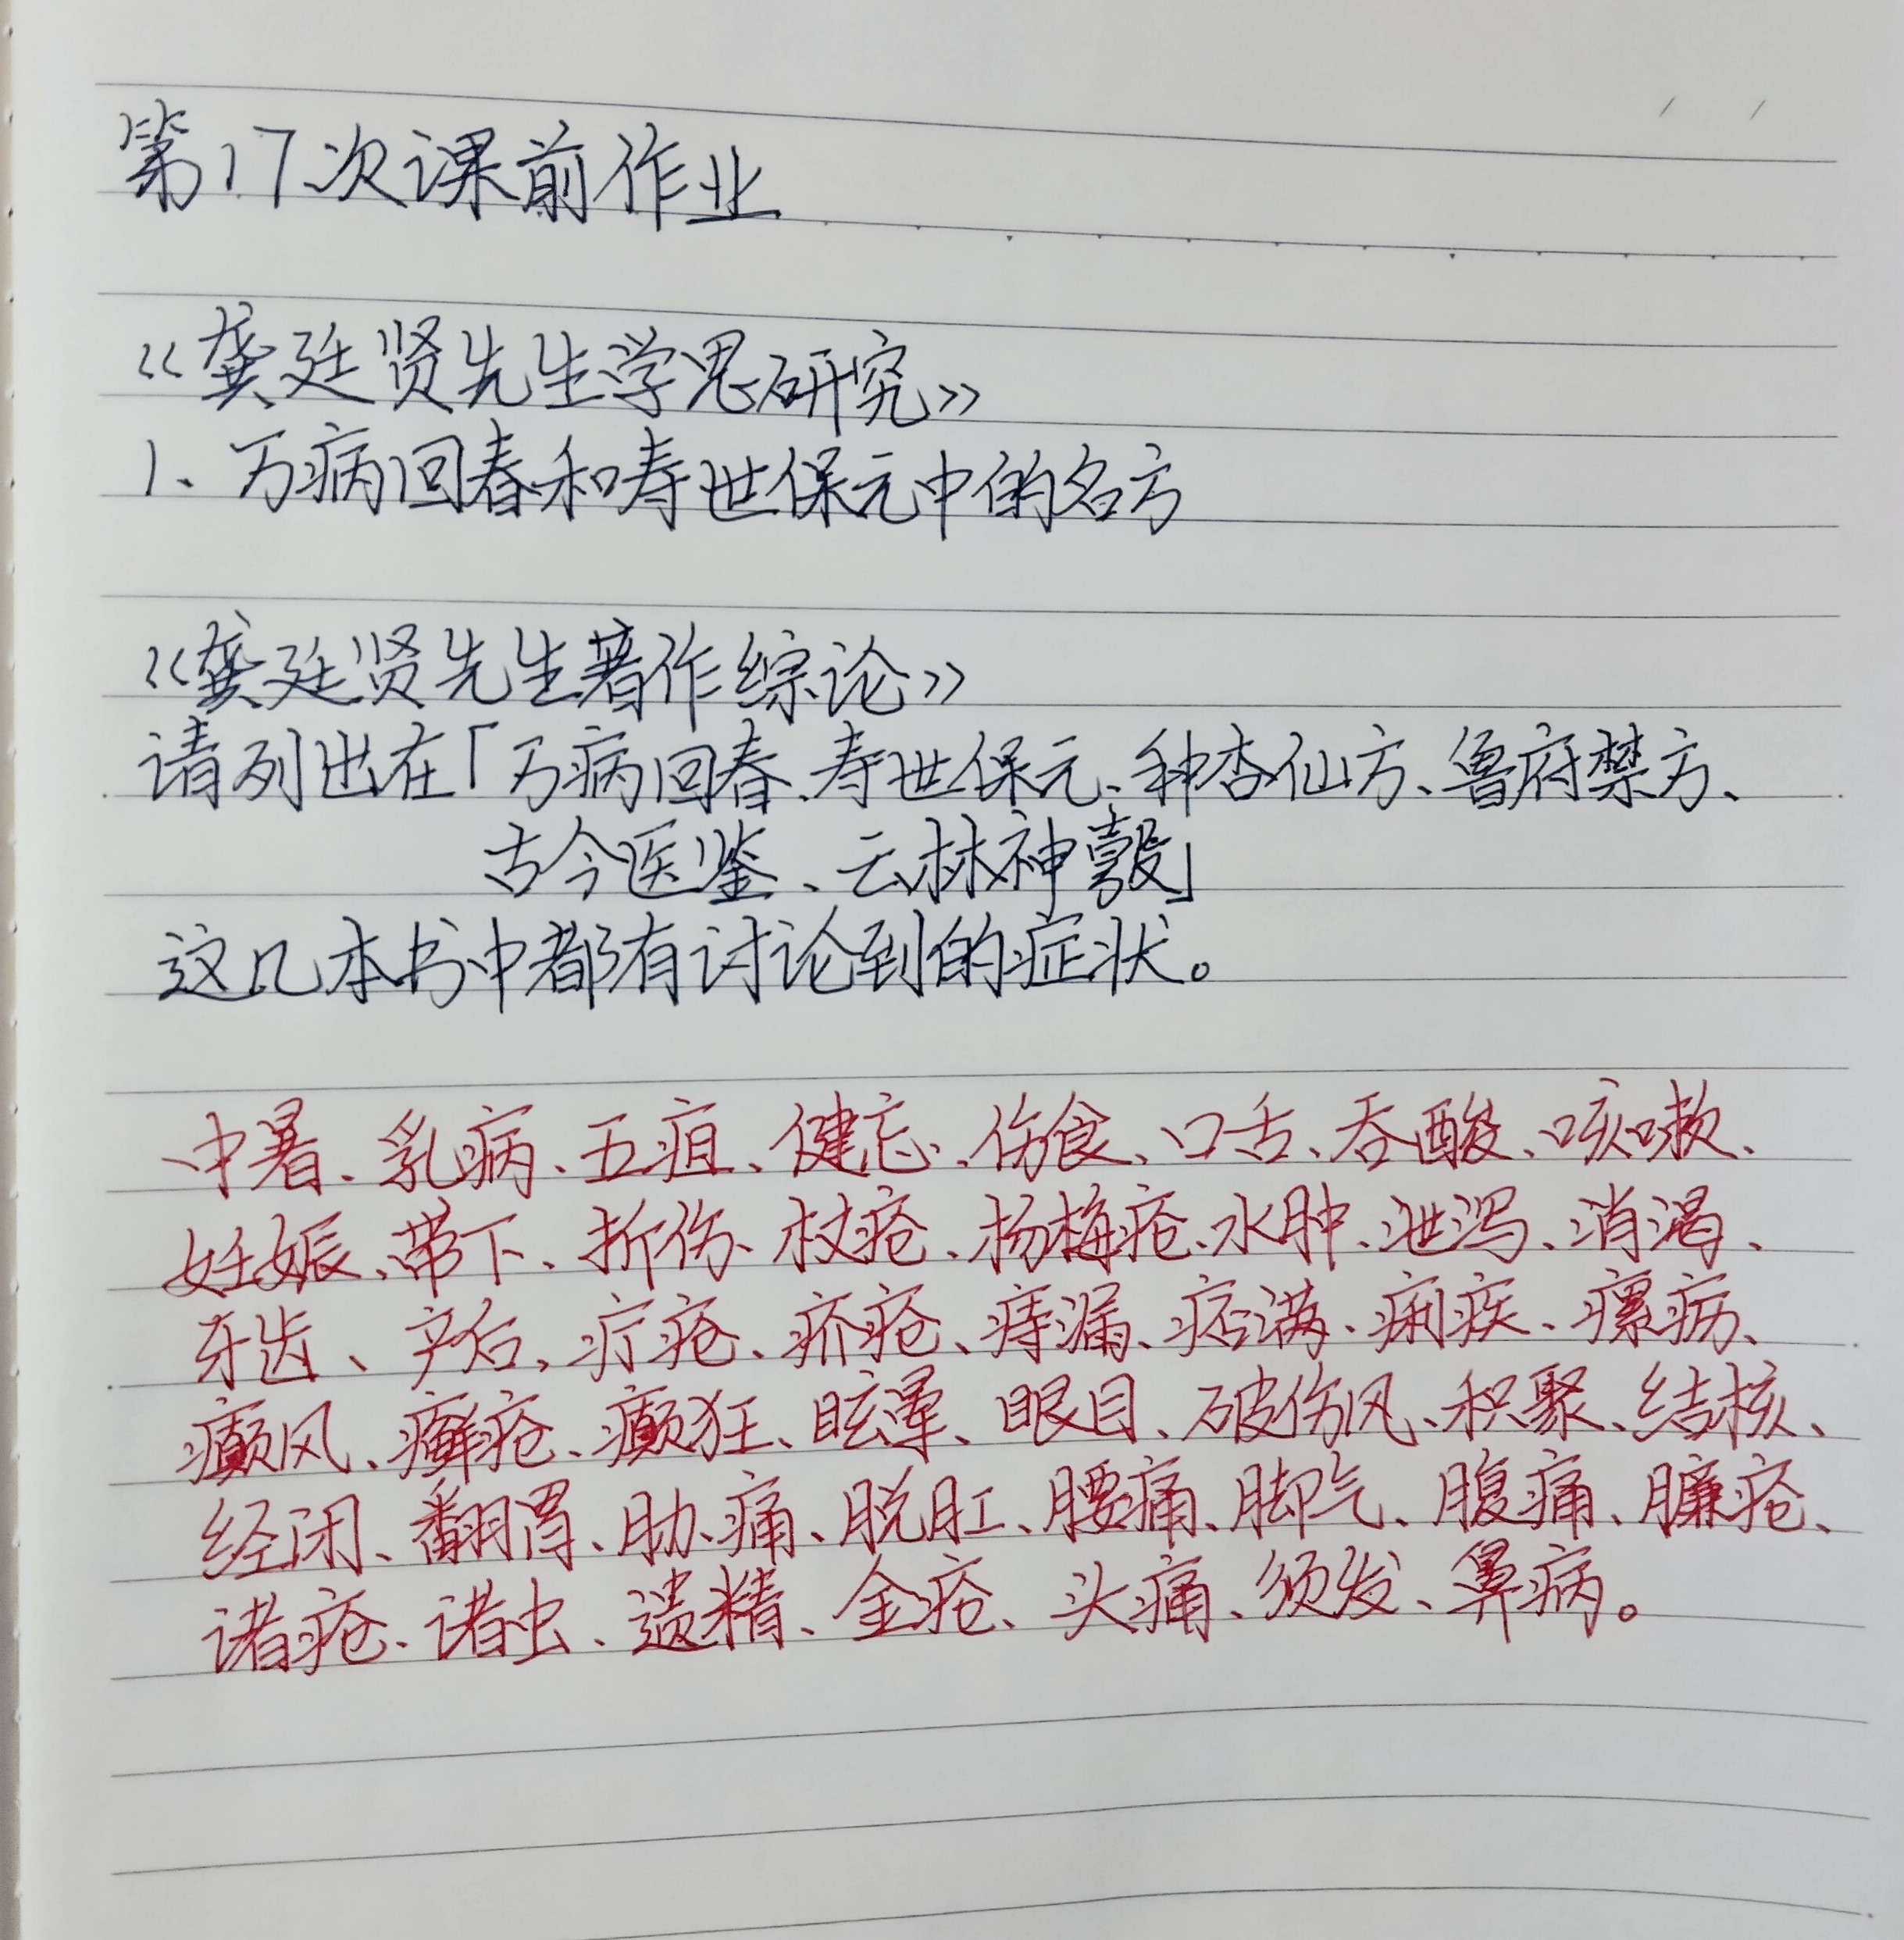 第17次课前作业
《龚廷贤先生学思研究》
1、万病回春和寿世保元中的名方
《龚廷贤先生著作综论》
请列出在「万病回春、寿世保元、种杏仙方、鲁府禁方、
古今医鉴、云林神彀」
这几本书中都有讨论到的症状。
中暑、乳病、五疸、健忘、伤食、口舌、吞酸、咳嗽、
妊娠、带下、折伤、杖疮、杨梅疮、水肿、泄泻、消渴、
牙齿、产后、疔疮、疥疮、痔漏、痞满、痢疾、瘰疬、
癫风、癣疮、癫狂、眩晕、眼目、破伤风、积聚、结核、
经闭、翻胃、胁痛、脱肛、腰痛、脚气、腹痛、臁疮、
诸疮、诸虫、遗精、金疮、头痛、须发、鼻病。